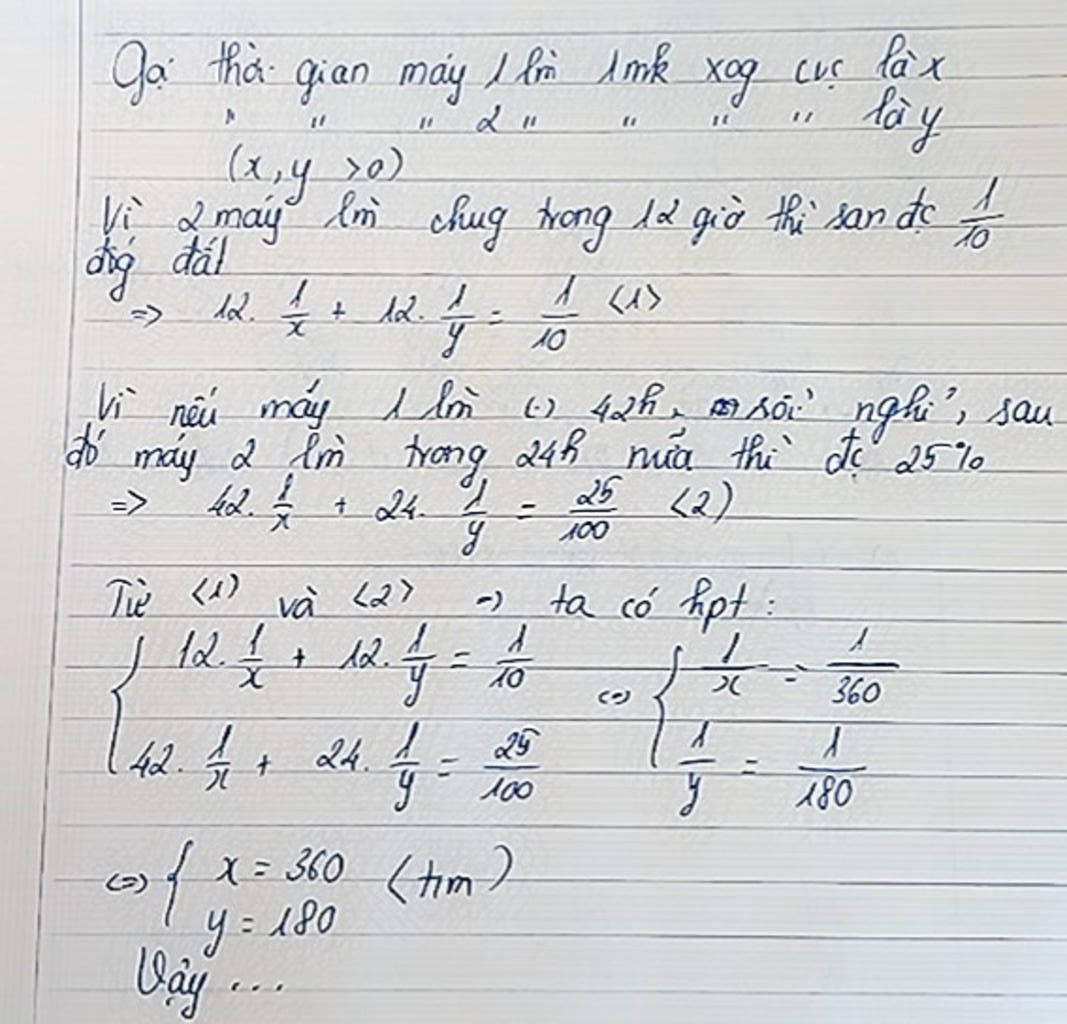 Gọi thời gian máy 1 lm 1mk xog cvc là x
" " " 2 " " " " là y
(x, y > 0)
Vì 2 máy lm chug trong 12 giờ thì san đc 1/10
đốg đất
=> 12. 1/x + 12. 1/y = 1/10 <1>
Vì nếu máy 1 lm (-) 42h, rồi nghỉ, sau
đó máy 2 lm trong 24h nữa thì đc 25%
=> 42. 1/x + 24. 1/y = 25/100 <2)
Từ <1) và <2> => ta có hpt:
{ 12. 1/x + 12. 1/y = 1/10 <=> { 1/x = 1/360
42. 1/x + 24. 1/y = 25/100 1/y = 1/180
<=> { x = 360 (tm)
y = 180
Vậy ...